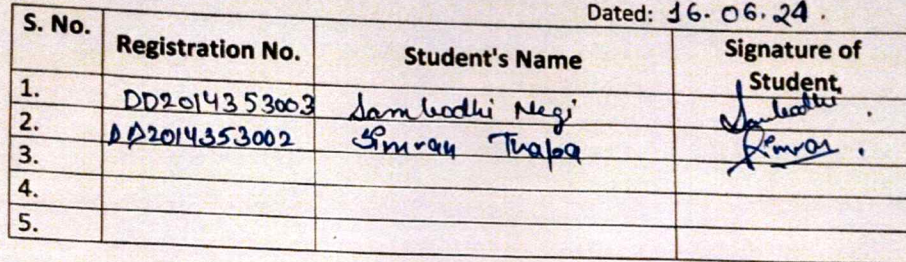 Dated: 16.06.24.
S. No. Registration No. Student's Name Signature of Student
1. DD2014353003 Sambodhi Negi Sambodhi
2. DD2014353002 Simran Thapa Simran
3.
4.
5.